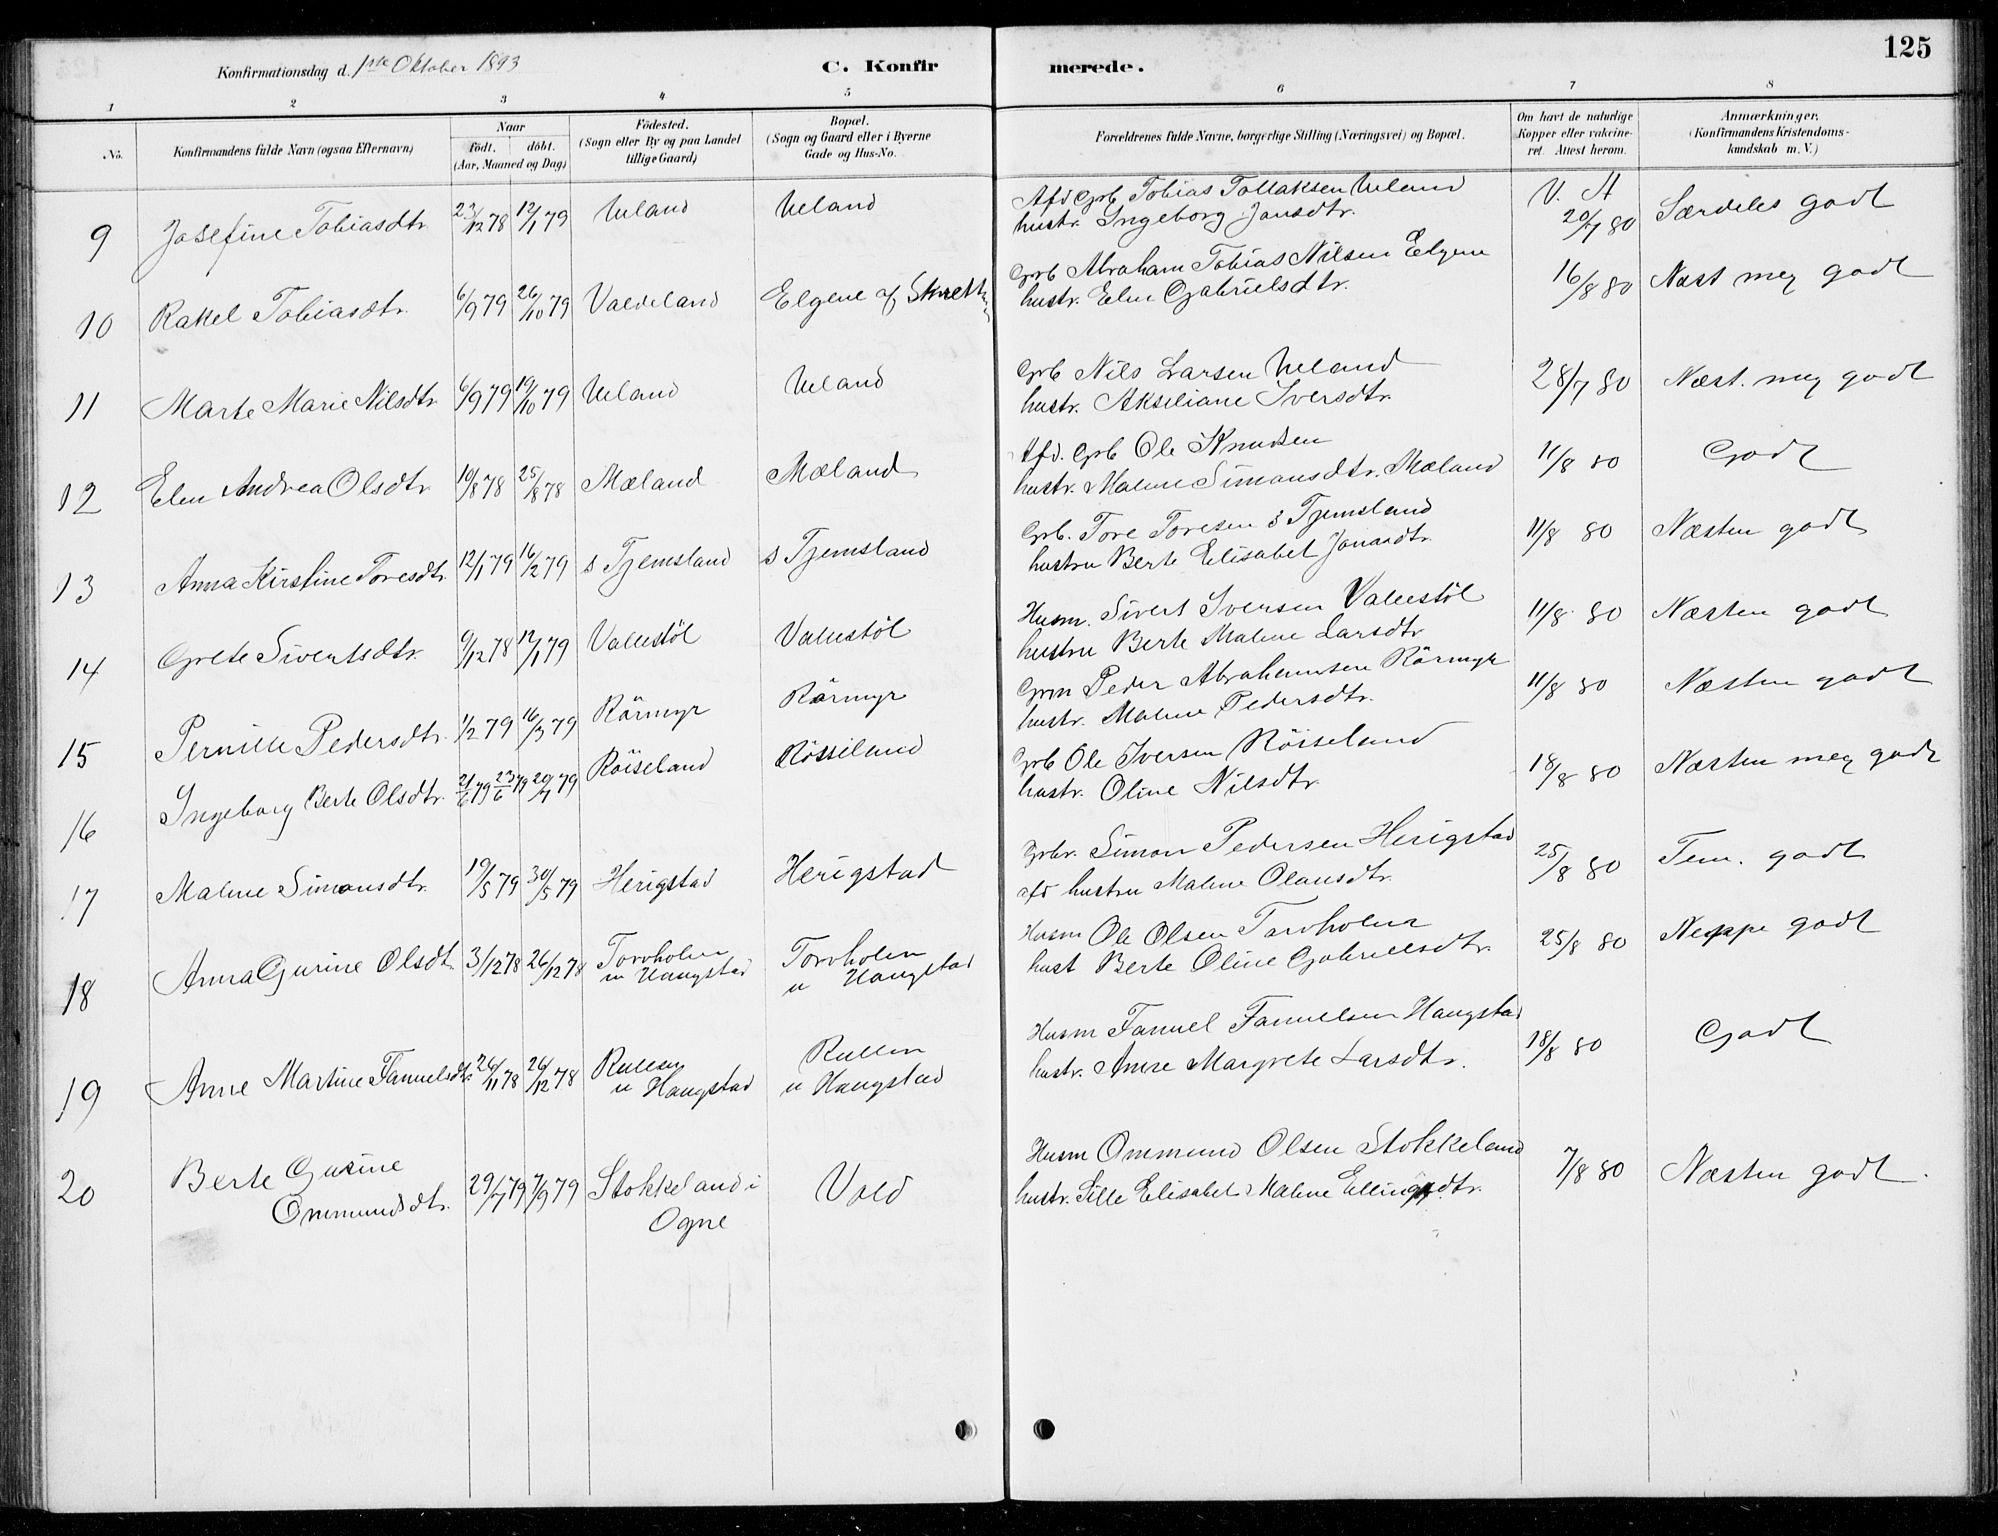 125
Konfirmationsdag d. 1ste Oktober 1893
C. Konfirmerede.
1 2 3 4 5 6 7 8
No. Konfirmandens fulde Navn (ogsaa Efternavn) Naar født. døbt. (Aar, Maaned og Dag) Födested. (Sogn eller By og paa Landet tillige Gaard) Bopæl. (Sogn og Gaard eller i Byerne Gade og Hus-No. Forældrenes fulde Navne, borgerlige Stilling (Næringsvei) og Bopæl. Om havt de naturlige Kopper eller vakcineret. Attest herom. Anmærkninger. (Konfirmandens Kristendomskundskab m. V.)
9 Josefine Tobiasdtr. 23/12 78 12/1 79 Ueland Ueland Afd Grb Tobias Tollaksen Ueland V. A
hustr. Ingeborg Jansdtr. 20/7 80 Særdeles godt
10 Rakel Tobiasdtr. 6/9 79 26/10 79 Valdeland Elgene af Grb Abraham Tobias Nilsen Elgene
hustr. Elen Gabrielsdtr. 16/8 80 Næst meg godt
11 Marte Marie Nilsdtr. 6/9 79 19/10 79 Ueland Ueland Grb Nils Larsen Ueland
hustr. Akseliane Iversdtr. 28/7 80 Næst. meg godt
12 Elen Andrea Olsdtr. 10/8 78 25/8 78 Mæland Mæland Afd. Grb Ole Knudsen
hustr. Malene Simonsdtr. Mæland 11/8 80 Godt
13 Anna Kirstine Toresdtr. 12/1 79 16/2 79 s Tjemsland s Tjemsland Grb. Tore Toresen s Tjemsland
hustru Berte Elisabet Jonasdtr. 11/8 80 Næsten godt
14 Grete Sivertsdtr. 9/12 78 12/1 79 Vallestöl Vallestöl Husm. Sivert Iversen Vallestöl
hustru Berte Malene Larsdtr. 11/8 80 Næsten godt
15 Pernille Pedersdtr. 1/2 79 16/3 79 Rörmyr Rörmyr Grm Peder Abrahamsen Rörmyr
hustr. Malene Pedersdtr. 11/8 80 Næsten godt
16 Ingeborg Berte Olsdtr. 21/6 79 23/6 79 20/7 79 Röiseland Rössiland Grb Ole Iversen Röiseland
hustr. Oline Nilsdtr. 18/8 80 Næsten meg godt
17 Malene Simonsdtr. 19/5 79 30/5 79 Herigstad Herigstad Grbr. Simon Pedersen Herigstad
afd hustru Malene Olausdtr. 25/8 80 Tem. godt
18 Anna Gurine Olsdt. 3/12 78 26/12 78 Torvholen
u Haugstad Torvholen
u Haugstad Husm Ole Olsen Torvholen
hust Berte Oline Gabrielsdtr. 25/8 80 Neppe godt
19 Anne Martine Fanuelsdtr. 26/11 78 26/12 78 Rullen
u Haugstad Rullen
u Haugstad Husm Fanuel Fanuelsen Haugstad
hustr. Anne Margrete Larsdtr. 18/8 80 Godt
20 Berte Gurine
Ommundsdtr. 29/7 79 7/9 79 Stokkeland i
Ogne Vold Husm Ommund Olsen Stokkeland
hustr. Sille Elisabet Malene Ellingsdtr. 7/8 80 Næsten godt.